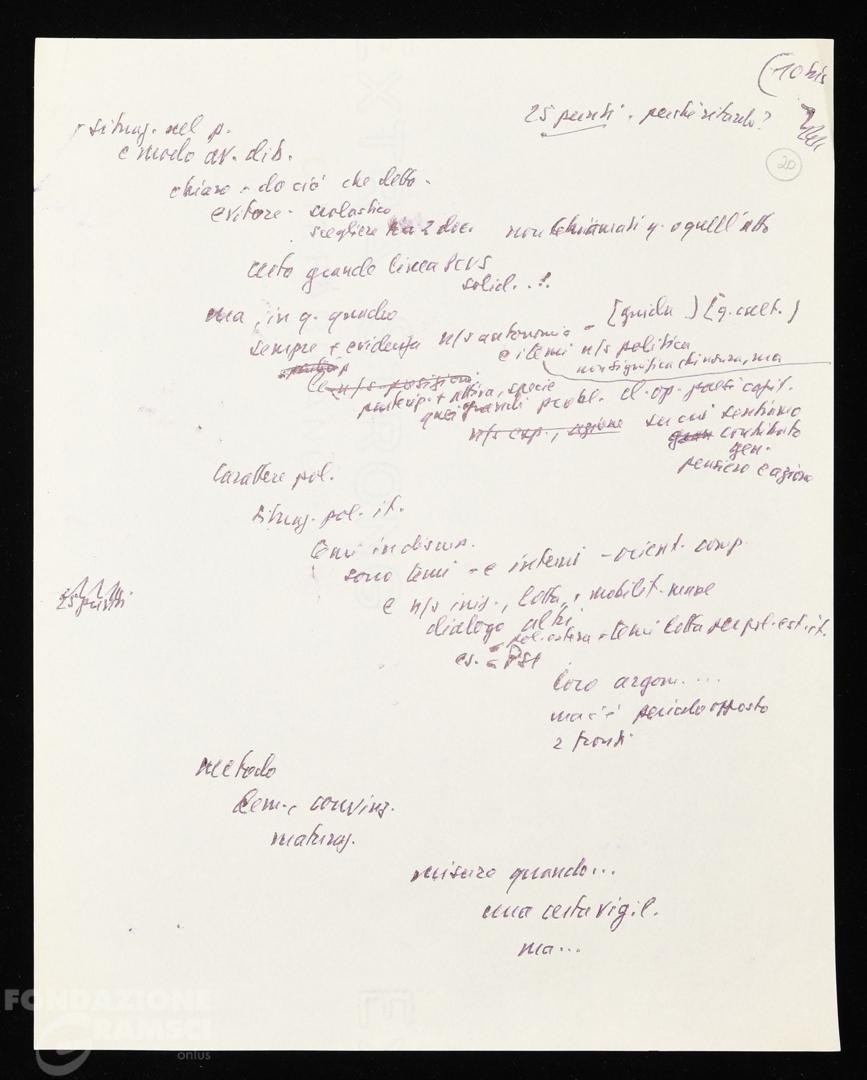 (10 bis
25 punti. perché ritardo?
20
situaz. nel p.
e modo av. dib.
chiaro - do ciò che detto -
evitare - scolastico
scegliere tra 2 doc. non chiamati q. o quell'altro
certo grande linea PCUS
solid. . .
ma, in q. quadro
[guida] [q. coest.]
sempre + evidenza n/s autonomia -
e i temi n/s politica
non significa chiusura, ma
le n/s posizioni
partecip. + attiva, specie
quei grandi probl. cl. op. paesi capit.
n/s esp., azione su cui sentiamo
gran contributo
gen.
pensiero e azione
Carattere pol.
situaz. pol. it.
temi in discuss.
sono temi - e interni - orient. comp.
25 punti
e n/s iniz., lotta, mobilit. masse
dialogo altri
pol. estera - temi lotta per pol. est. it.
es. PSI
loro argom. ....
ma c'è pericolo opposto
2 fronti
metodo
dem., convinz.
maturaz.
misure quando...
una certa vigil.
ma...
FONDAZIONE
GRAMSCI
onlus